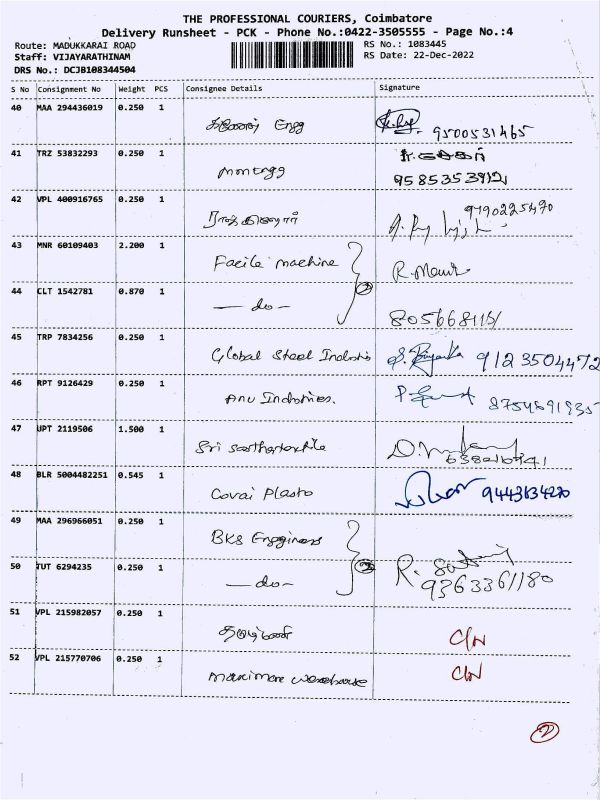 THE PROFESSIONAL COURIERS, Coimbatore
Delivery Runsheet - PCK - Phone No.:0422-3505555 - Page No.:4
Route: MADUKKARAI ROAD
Staff: VIJAYARATHINAM
DRS No.: DCJB108344504
RS No.: 1083445
RS Date: 22-Dec-2022
S No Consignment No Weight PCS Consignee Details Signature
40 MAA 294436019 0.250 1 Engg 9500531465
41 TRZ 53832293 0.250 1 9585353912
42 VPL 400916765 0.250 1 9790225470
43 MNR 60109403 2.200 1 Facile machine R.
44 CLT 1542781 0.870 1 — do — 2
45 TRP 7834256 0.250 1 Global Steel Industris S. Priyanka 9123504472
46 RPT 9126429 0.250 1 Anu Industries. 8754691935
47 UPT 2119506 1.500 1 Sri
48 BLR 5004482251 0.545 1 Covai Plasto 9443634270
49 MAA 296966051 0.250 1 BKS Engginers
50 TUT 6294235 0.250 1 — do — 2 R. 9363361180
51 VPL 215982057 0.250 1 C/N
52 VPL 215770706 0.250 1 C/N
2